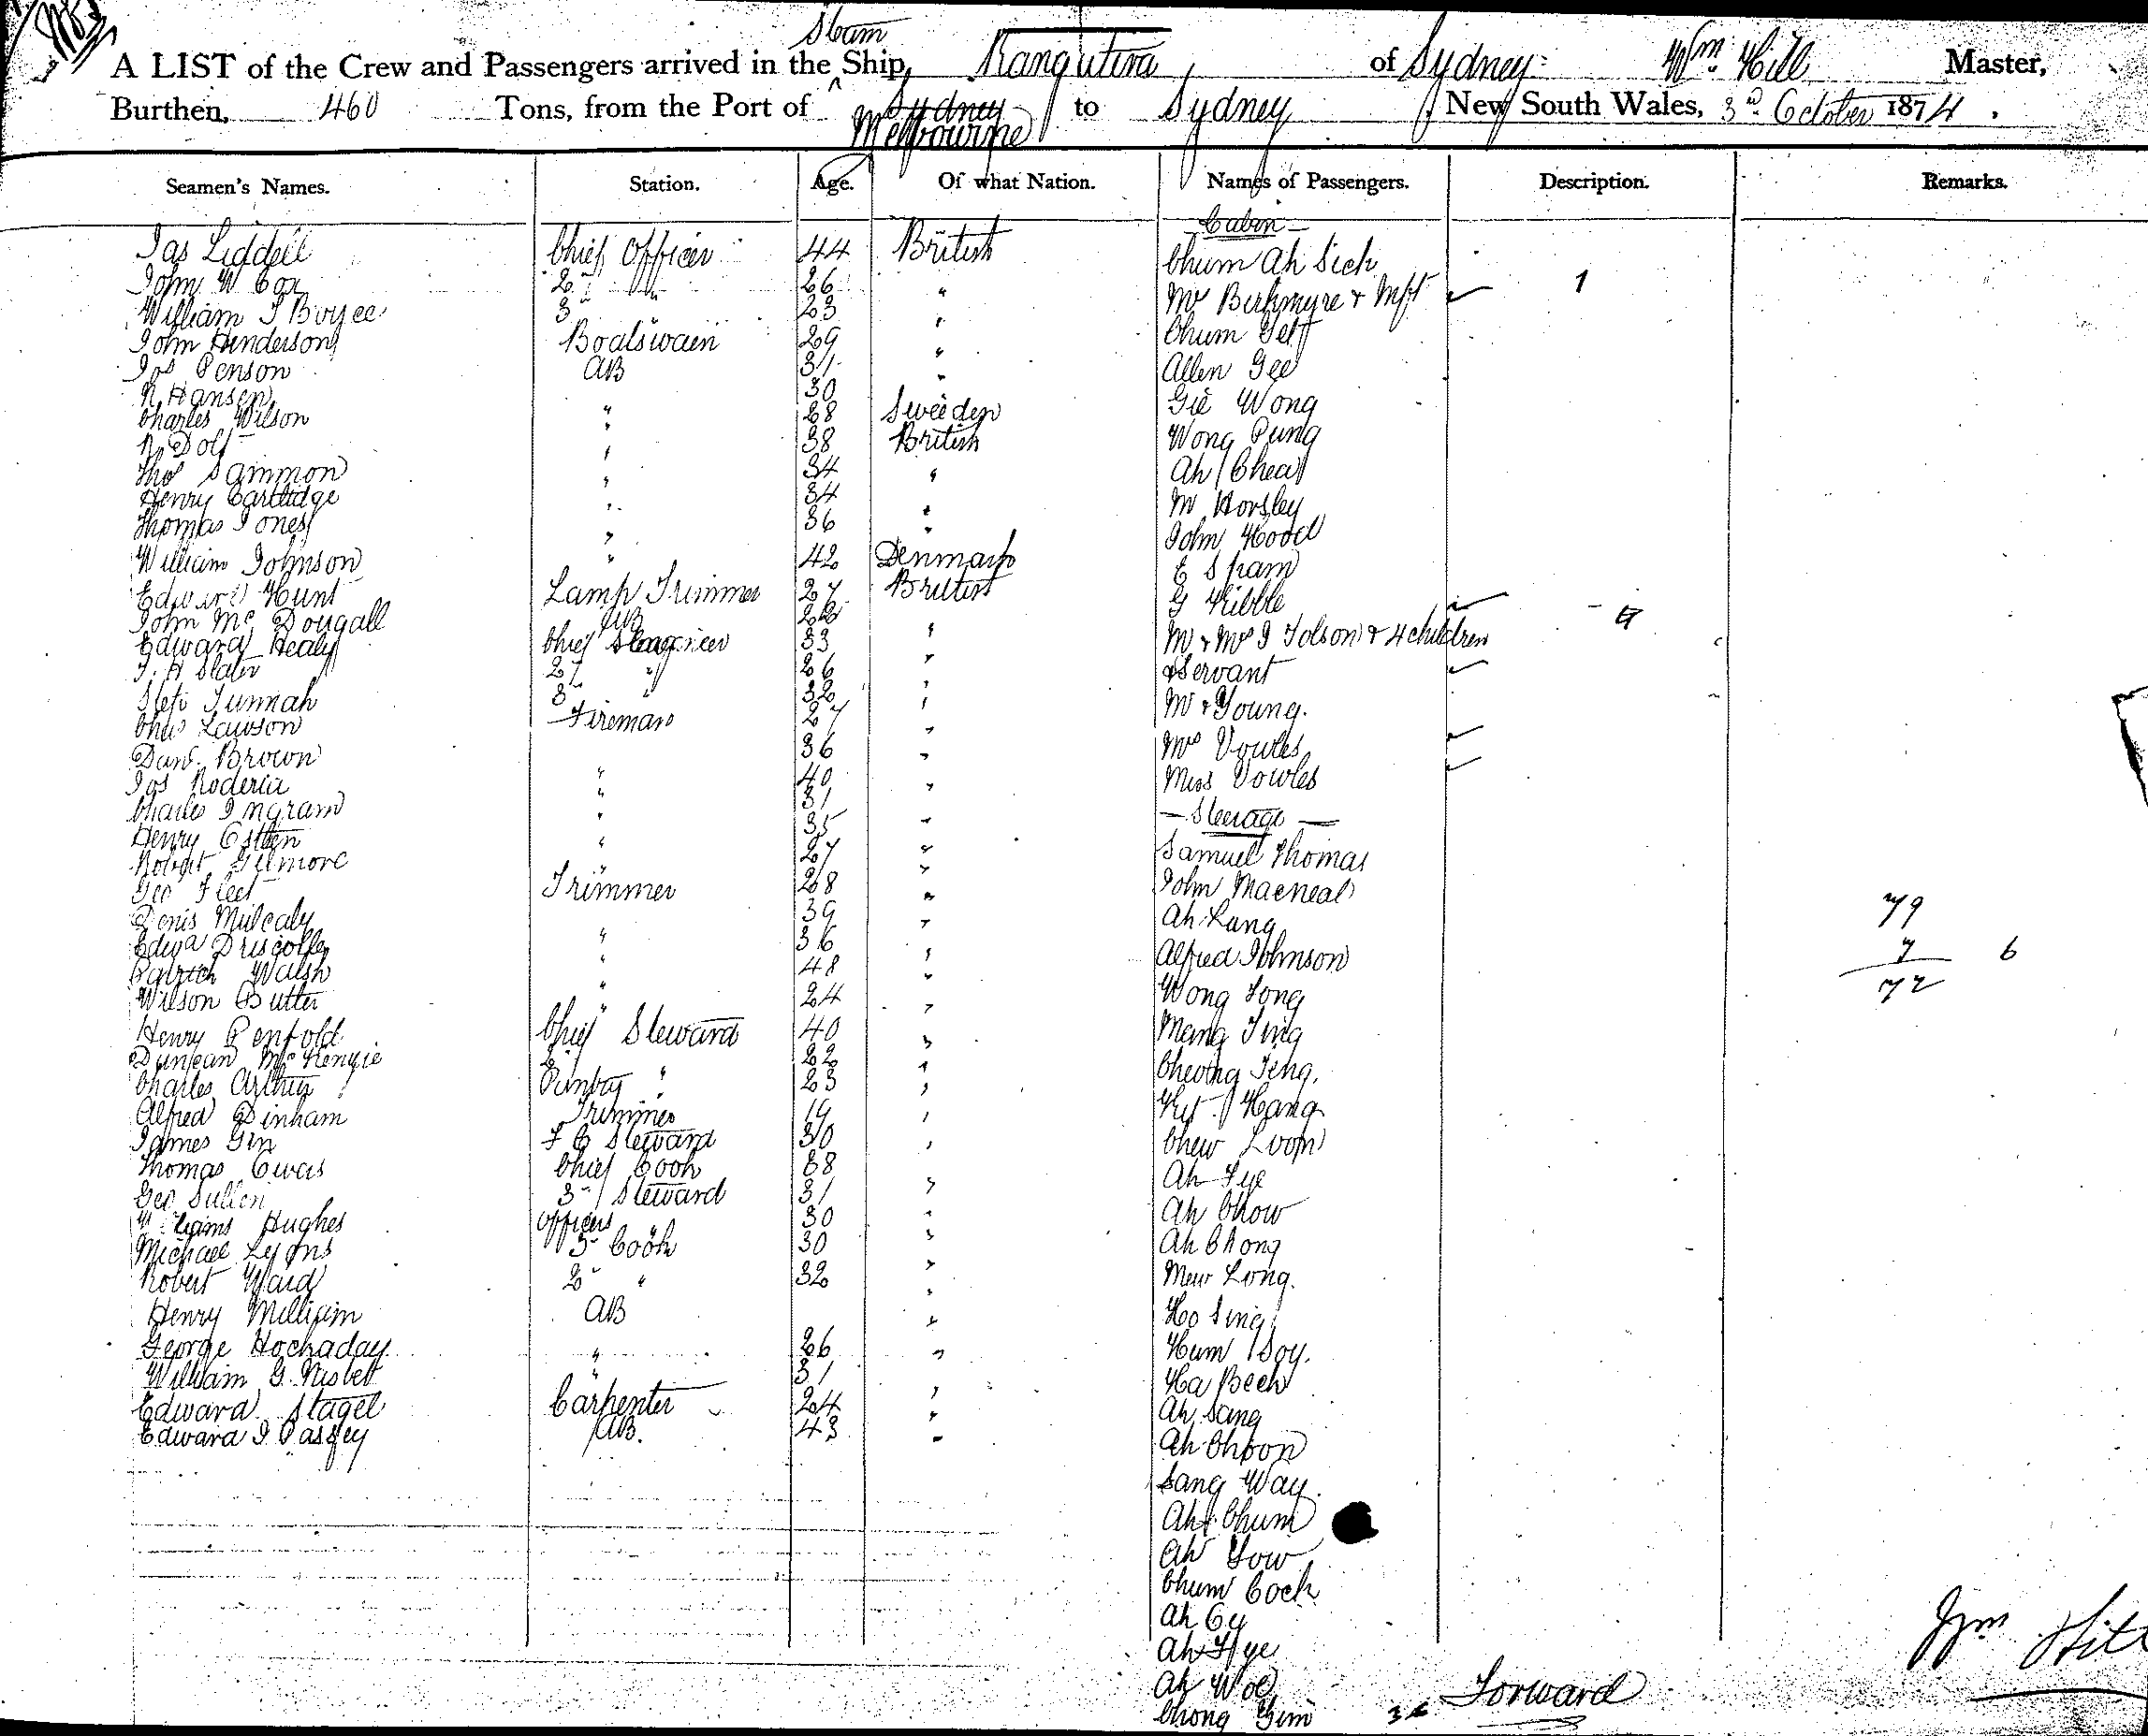 Steam
A LIST of the Crew and Passengers arrived in the Ship, Rangatira of Sydney Wm Hill Master,
Burthen, 460 Tons, from the Port of Sydney Melbourne to Sydney New South Wales, 3rd October 1874.
Seamen's Names. Station. Age. Of what Nation. Names of Passengers. Description. Remarks.
Cabin
Jas Liddell Chief Officer 44 British Chum Ah Sich
John W Cox 2 " 26 " Mr Birkmyre & 1
William J Boyce 3 " 23 " Chum
John Henderson Boatswain 29 " Allen Gee
Jos Penson AB 31 " Gie Wong
N Hansen " 30 Sweeden Wong Pung
Charles Wilson " 28 British Ah Chea
N Dolf " 38 " M Horsley
Thos Sammon " 34 " John Hood
Henry Cartlidge " 34 " E Spam
Thomas Jones " 36 G Kibble
William Johnson " 42 Denmark M & Mrs J Tolson & 4 children
Edward Hunt Lamp Trimmer 27 British & Servant
John McDougall AB 22 " Mr Young.
Edward Healy Chief Engineer 33 " Mrs Vowles
J. H Slater 2 " 26 " Miss Vowles
Tunnah 3 " 32 " — Steerage —
Chas Lawson Fireman 27 " Samuel Thomas
Davd. Brown 36 " John Macneal
Jos Roderia " 40 " Ah Lang
Charles Ingram " 31 " Alfred Johnson
Henry " 35 " Wong Tong
Robert Gilmore " 27 " Mang Ting
Geo Fleet Trimmer 28 " Cheong Teng.
Denis Mulcaly 39 " Hang 79
Edwd Driscoll " 36 " Chew Loom 7 6
Patrick Walsh " 48 " Ah Fye 72
Wilson Butler " 24 " Ah Chow
Henry Penfold Chief Steward 40 " Ah Chong
Duncan McKenzie 2 " 22 " Mew Long.
Charles Arthur Pantry " 23 " Ho Sing
Alfred Dinham Trimmer 19 " Hum Soy.
James Gin F C Steward 30 " Ha Beck
Thomas Chief Cook 38 " Ah Sang
Geo Sullen 3 Steward 31 " Ah Choon
Williams Hughes Officers " 30 " Sang Way.
Michael Lyons 3 Cook 30 " Ah Chum
Robert Ward 2 " 32 " Ah Yow
Henry Milligim AB " Chum Cock
George Hochaday " 26 " Ah Cy
William G. Nisbett " 31 Ah Hye
Edward Stagel Carpenter 24 " Ah Woe
Edward J Passey AB. 43 " Chong Gim
Forward
Wm Hill